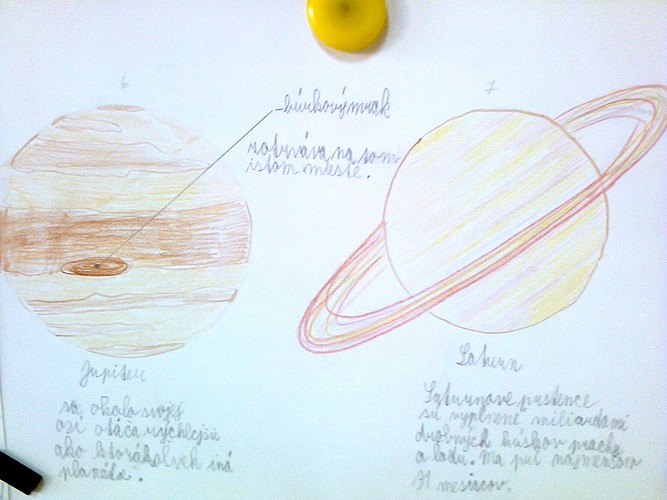 6
búrkový mrak
zotrváva na tom
istom mieste.
Jupiter
sa okolo svojej
osi otáča rýchlejšie
ako ktorákoľvek iná
planéta.
7
Saturn
Saturnove prstence
sú vyplnené miliardami
drobných kúskov prachu
a ľadu. Má
mesiacov.